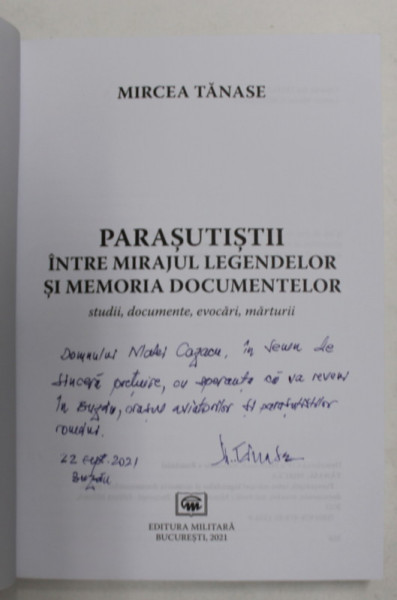 MIRCEA TĂNASE
PARAȘUTIȘTII
ÎNTRE MIRAJUL LEGENDELOR
ȘI MEMORIA DOCUMENTELOR
studii, documente, evocări, mărturii
Domnului Matei Cazacu, în semn de
sinceră prețuire, cu speranța că va reveni
în Buzău, orașul aviatorilor și parașutiștilor
români.
22 sept. 2021
Buzău
M. Tănase
EDITURA MILITARĂ
BUCUREȘTI, 2021